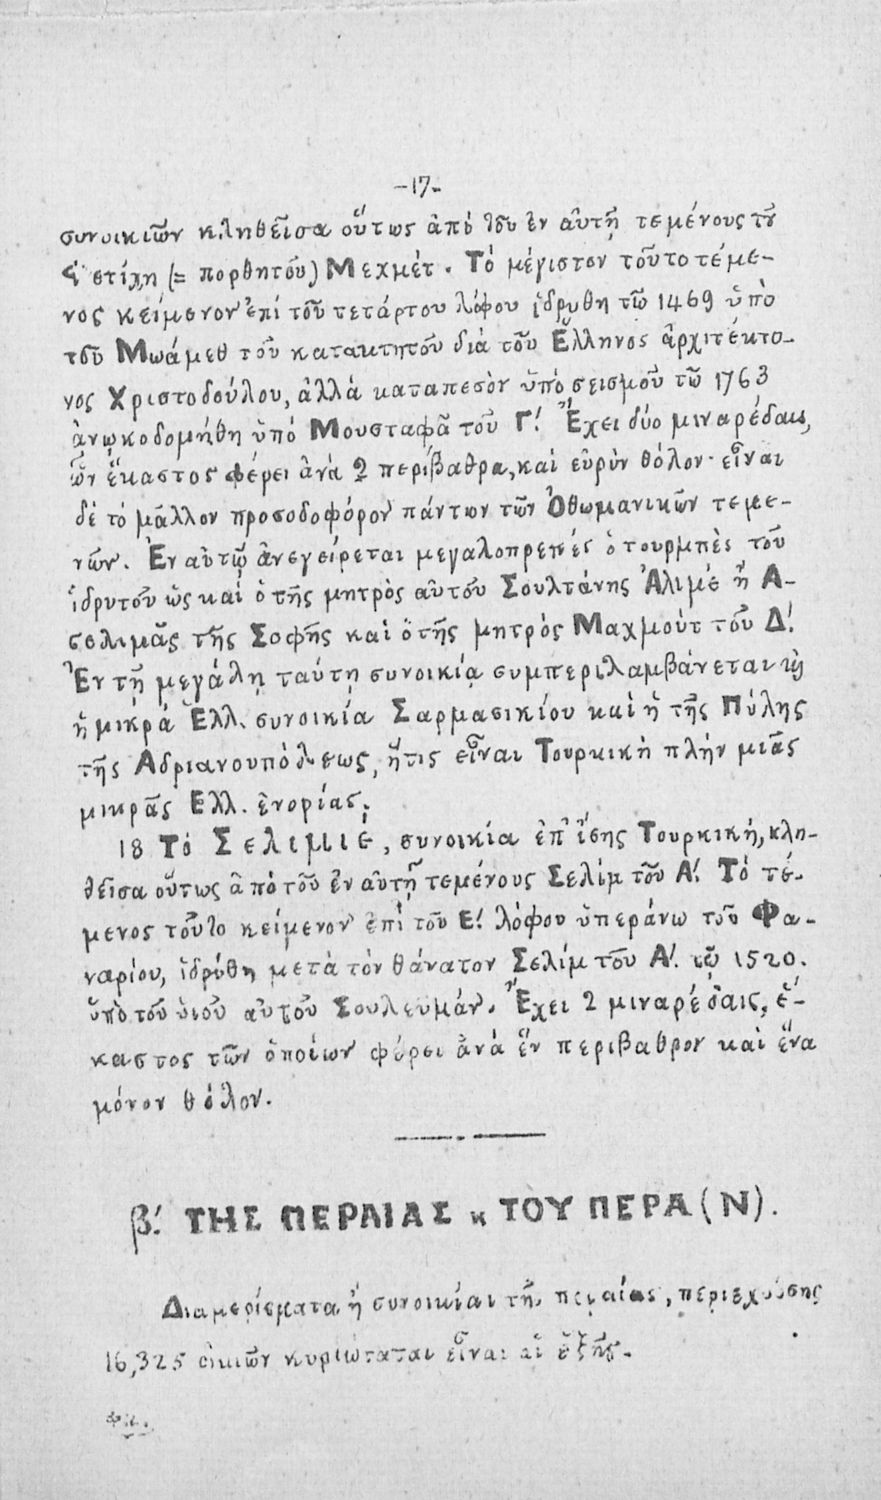 -17-
συνοικιῶν κληθεῖσα οὕτως ἀπὸ τοῦ ἐν αὐτῇ τεμένους τοῦ
(= πορθητοῦ) Μεχμέτ. Τὸ μέγιστον τοῦτο τέμε-
νος κείμενον ἐπὶ τοῦ τετάρτου λόφου ἱδρύθη τῷ 1469 ὑπὸ
τοῦ Μωάμεθ τοῦ κατακτητοῦ διὰ τοῦ Ἕλληνος ἀρχιτέκτο-
νος Χριστοδούλου, ἀλλὰ καταπεσὸν ὑπὸ σεισμοῦ τῷ 1763
ἀνῳκοδομήθη ὑπὸ Μουσταφᾶ τοῦ Γ.' Ἔχει δύο μιναρέδαις,
ὧν ἕκαστος φέρει ἀνὰ 2 περίβαθρα, καὶ εὐρὺν θόλον· εἶναι
δὲ τὸ μᾶλλον προσοδοφόρον πάντων τῶν Ὀθωμανικῶν τεμε-
νῶν. Ἐν αὐτῷ ἀνεγείρεται μεγαλοπρεπὲς ὁ τουρμπὲς τοῦ
ἱδρυτοῦ ὡς καὶ ὁ τῆς μητρὸς αὐτοῦ Σουλτάνης Ἀλιμὲ ἢ Α-
σελιμᾶς τῆς Σοφῆς καὶ ὁ τῆς μητρὸς Μαχμοὺτ τοῦ Δ.'
Ἐν τῇ μεγάλῃ ταύτῃ συνοικίᾳ συμπεριλαμβάνεται κ̀
ἡ μικρὰ Ἑλλ. συνοικία Σαρμασικίου καὶ ἡ τῆς Πύλης
τῆς Αδριανουπόλεως, ἥτις εἶναι Τουρκικὴ πλὴν μιᾶς
μικρᾶς Ελλ. ἐνορίας.
18 Τὸ Σελιμιέ, συνοικία ἐπ' ἴσης Τουρκική, κλη-
θεῖσα οὕτως ἀπὸ τοῦ ἐν αὐτῇ τεμένους Σελὶμ τοῦ Α.' Τὸ τέ-
μενος τοῦτο κείμενον ἐπὶ τοῦ Ε.' λόφου ὑπεράνω τοῦ Φα-
ναρίου, ἱδρύθη μετὰ τὸν θάνατον Σελὶμ τοῦ Α.' τῷ 1520.
ὑπὸ τοῦ υἱοῦ αὐτοῦ Σουλεϋμάν. Ἔχει 2 μιναρέδαις, ἕ-
καστος τῶν ὁποίων φέρει ἀνὰ ἓν περίβαθρον καὶ ἕνα
μόνον θόλον.
β.' ΤΗΣ ΠΕΡΑΙΑΣ κ ΤΟΥ ΠΕΡΑ(Ν).
Διαμερίσματα ἢ συνοικίαι τῆς περαίας, περιεχούσης
16,325 οἰκιῶν κυριώταται εἶναι αἱ ἑξῆς.